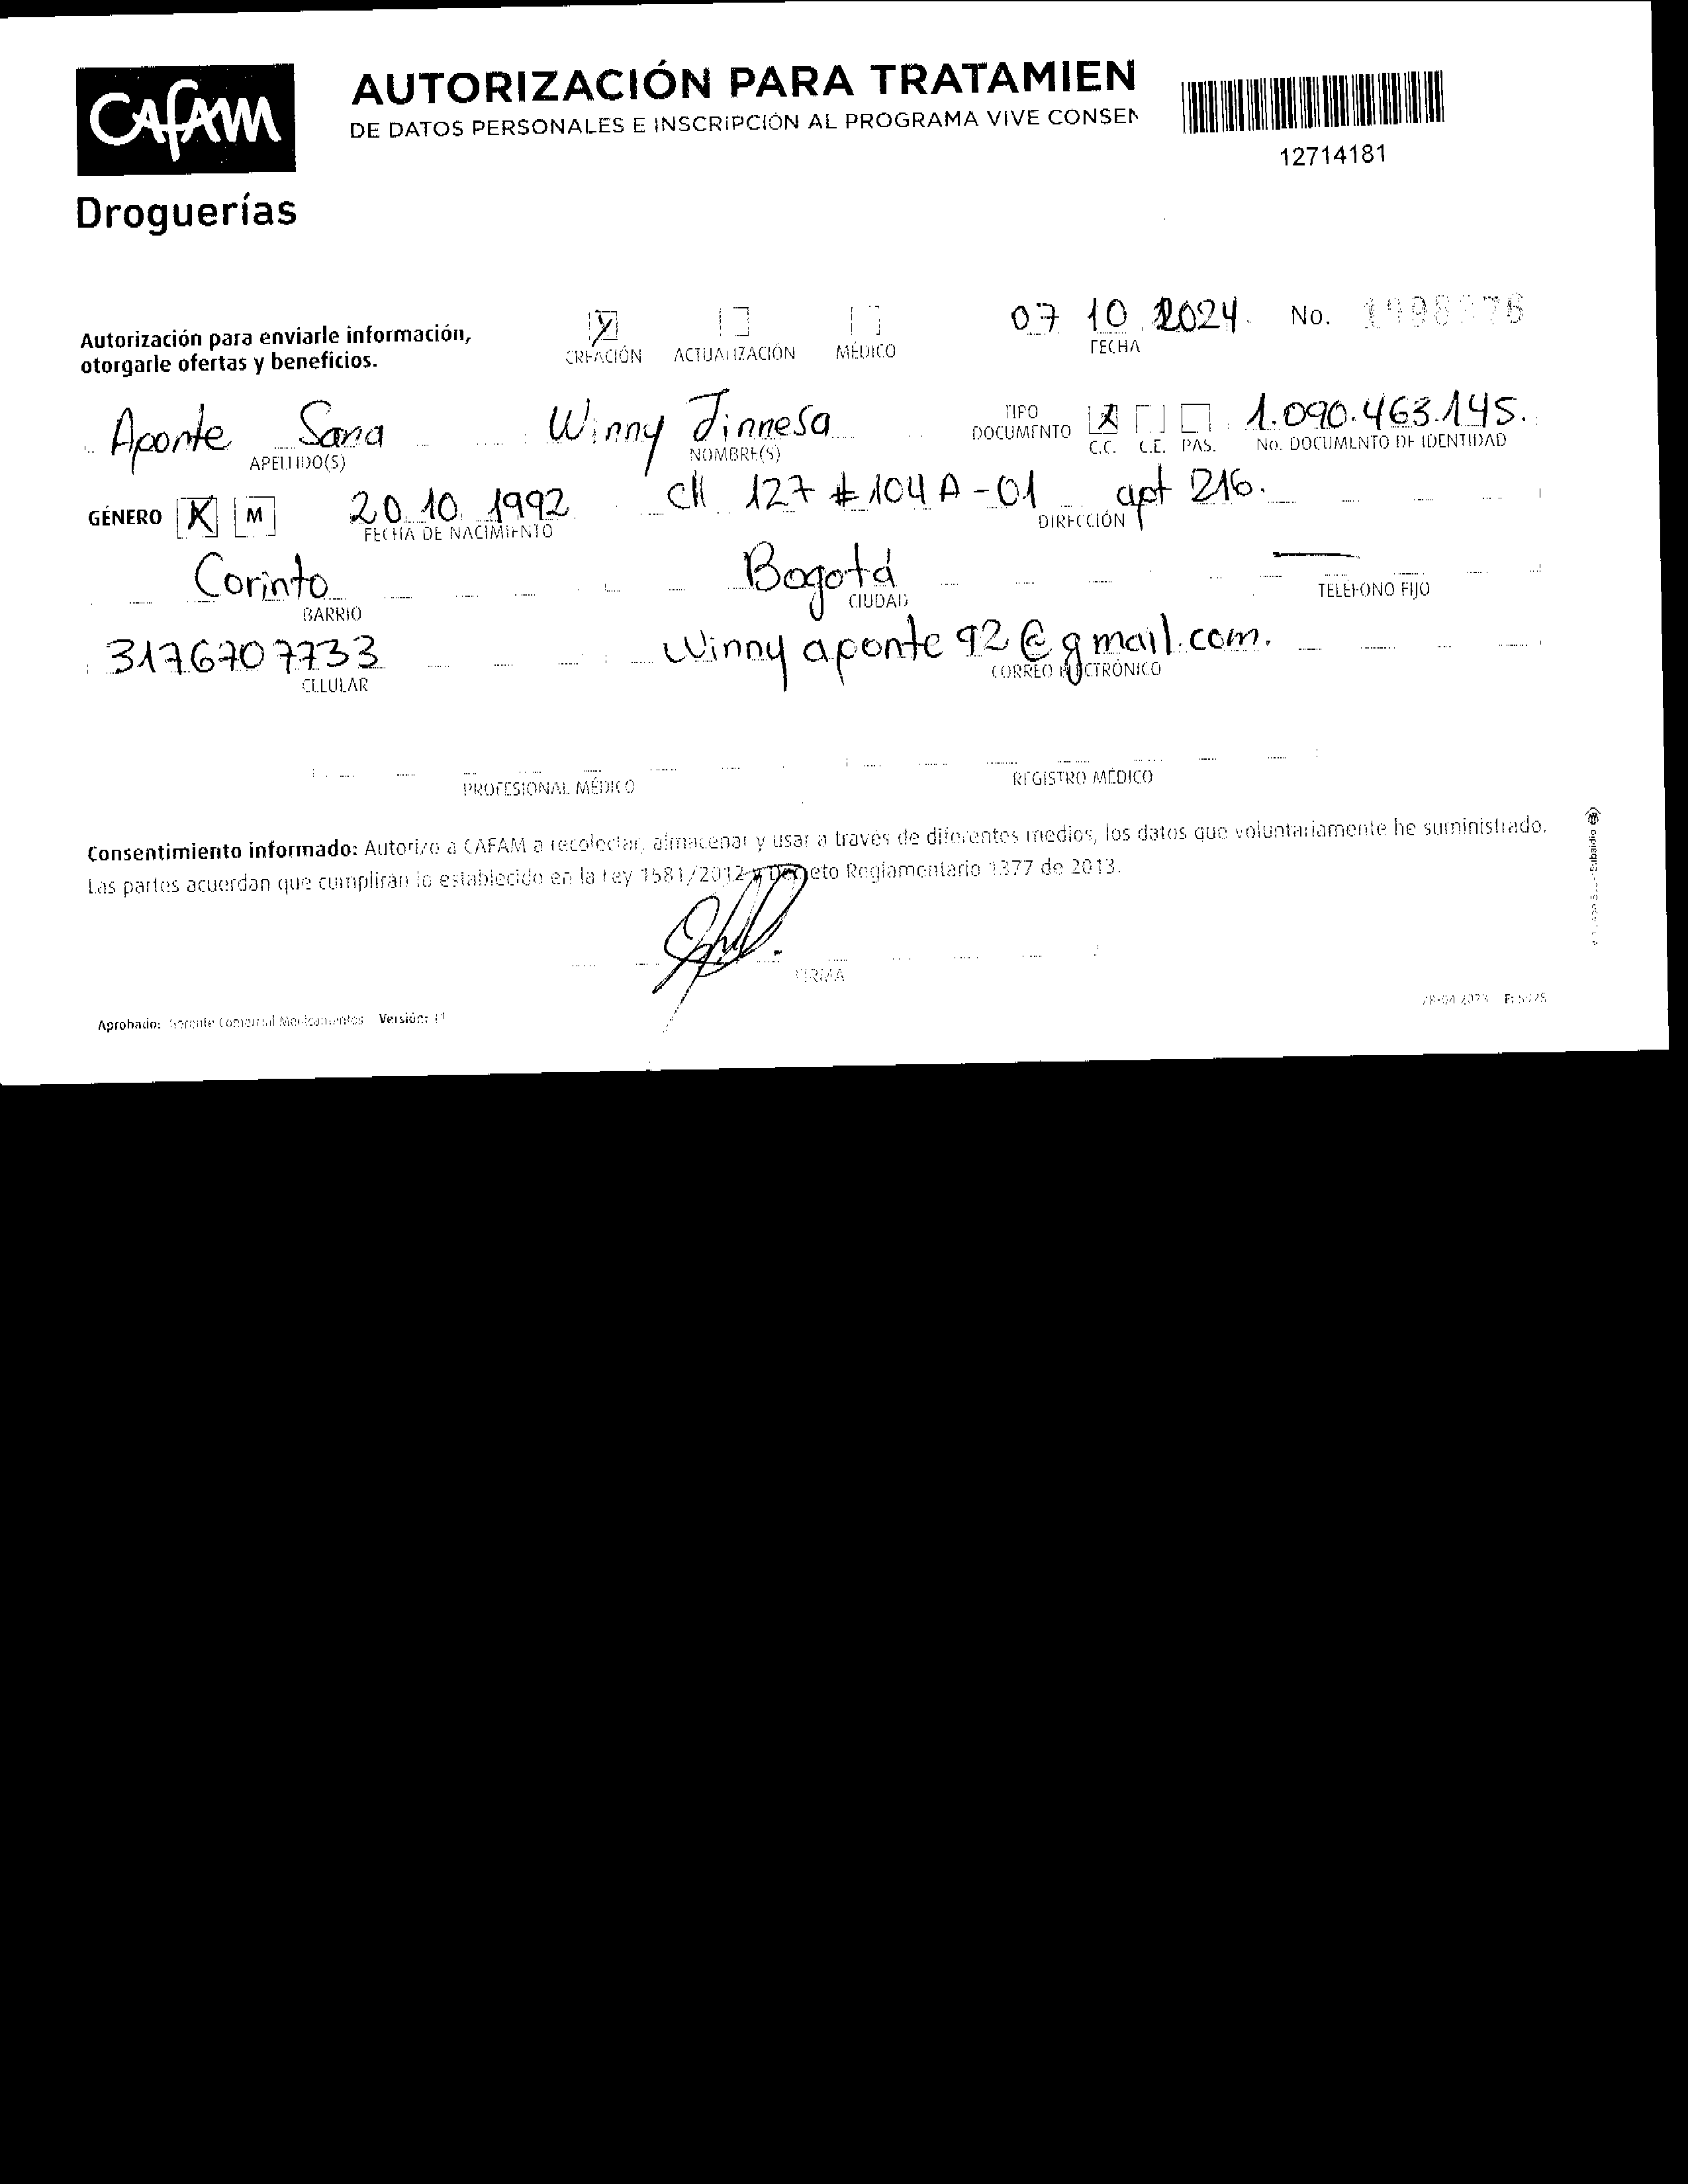 CAFAM
Droguerías
AUTORIZACIÓN PARA TRATAMIEN
DE DATOS PERSONALES E INSCRIPCIÓN AL PROGRAMA VIVE CONSEN
12714181
Autorización para enviarle información,
otorgarle ofertas y beneficios.
X
CREACIÓN ACTUALIZACIÓN MÉDICO
07 10 2024. No.
FECHA
Aponte Sana Winny Jinnesa TIPO DOCUMENTO X 1.090.463.145.
APELLIDO(S) NOMBRE(S) C.C. C.E. PAS. No. DOCUMENTO DE IDENTIDAD
GÉNERO X M 20 10 1992 cll 127 # 104 A - 01 apt 216.
FECHA DE NACIMIENTO DIRECCIÓN
Corinto Bogotá —
BARRIO CIUDAD TELÉFONO FIJO
3176707733 Winny aponte 92 @ gmail.com.
CELULAR CORREO ELECTRÓNICO
PROFESIONAL MÉDICO REGISTRO MÉDICO
Consentimiento informado: Autorizo a CAFAM a recolectar, almacenar y usar a través de diferentes medios, los datos que voluntariamente he suministrado.
Las partes acuerdan que cumplirán lo establecido en la Ley 1581/2012 y Decreto Reglamentario 1377 de 2013.
FIRMA
Aprobado: Gerente Comercial Medicamentos Versión: